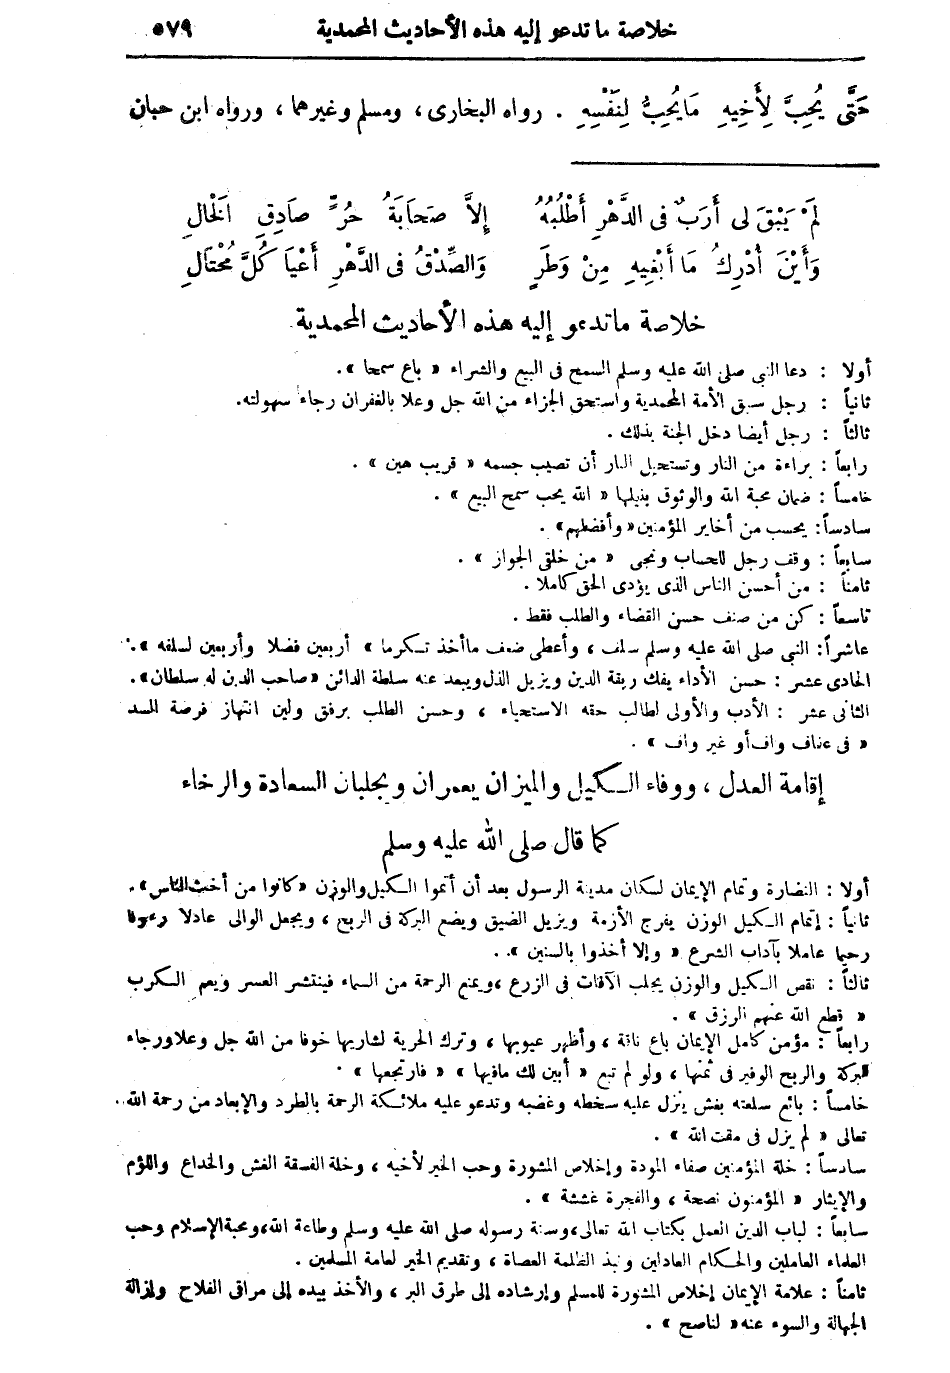 خلاصة ما تدعو إليه هذه الأحاديث المحمدية ٥٧٩
حَتَّى يُحِبَّ لِأَخِيهِ مَا يُحِبُّ لِنَفْسِهِ . رواه البخارى ، ومسلم وغيرهما ، ورواه ابن حبان
لَمْ يَبْقَ لى أَرَبٌ فى الدَّهْرِ أَطْلُبُهُ إِلاَّ صَحَابَةُ حُرٍّ صَادِقِ الْخَالِ
وَأَيْنَ أُدْرِكُ مَا أَبْغِيهِ مِنْ وَطَرٍ وَالصِّدْقُ فى الدَّهْرِ أَعْيَا كُلَّ مُحْتَالِ
خلاصة ما تدعو إليه هذه الأحاديث المحمدية
أولا : دعا النبى صلى الله عليه وسلم السمح فى البيع والشراء « باع سمحا » .
ثانياً : رجل سبق الأمة المحمدية واستحق الجزاء من الله جل وعلا بالغفران رجاء سهولته .
ثالثاً : رجل أيضا دخل الجنة بذلك .
رابعاً : براءة من النار وتستحيل النار أن تصيب جسمه « قريب هين » .
خامساً : ضمان محبة الله والوثوق بنيلها « الله يحب سمح البيع » .
سادساً : يحسب من أخاير المؤمنين « وأفضلهم » .
سابعاً : وقف رجل للحساب ونجى « من خلقى الجواز » .
ثامناً : من أحسن الناس الذى يؤدى الحق كاملا .
تاسعاً : كن من صنف حسن القضاء والطلب فقط .
عاشراً : النبى صلى الله عليه وسلم سلف ، وأعطى ضعف ما أخذ تكرما « أربعين فضلا وأربعين لسلفه » .
الحادى عشر : حسن الأداء يفك ربقة الدين ويزيل الذل ويبعد عنه سلطة الدائن « صاحب الدين له سلطان » .
الثانى عشر : الأدب والأولى لطالب حقه الاستحياء ، وحسن الطلب برفق ولين انتهاز فرصة المسد
« فى عفاف واف أو غير واف » .
إقامة العدل ، ووفاء الكيل والميزان يعمران ويجلبان السعادة والرخاء
كما قال صلى الله عليه وسلم
أولا : النضارة وتمام الإيمان لسكان مدينة الرسول بعد أن أتموا الكيل والوزن « كانوا من أخبث الناس » .
ثانياً : إتمام الكيل الوزن يفرج الأزمة ويزيل الضيق ويضع البركة فى الربح ، ويجعل الوالى عادلا رءوفا
رحيما عاملا بآداب الشرع « وإلا أخذوا بالسنين » .
ثالثاً : نقص الكيل والوزن يجلب الآفات فى الزرع ، ويمنع الرحمة من السماء فينتشر العسر ويعم الكرب
« قطع الله عنهم الرزق » .
رابعاً : مؤمن كامل الإيمان باع ناقة ، وأظهر عيوبها ، وترك الحرية لشاريها خوفا من الله جل وعلا ورجاء
البركة والربح الوفير فى ثمنها ، ولو لم تبع « أبين لك مافيها » « فارتجعها » .
خامساً : بائع سلعته بغش ينزل عليه سخطه وغضبه وتدعو عليه ملائكة الرحمة بالطرد والإبعاد من رحمة الله
تعالى « لم يزل فى مقت الله » .
سادساً : خلة المؤمنين صفاء المودة وإخلاص المشورة وحب الخير لأخيه ، وخلة الفسقة الغش والخداع واللؤم
والإيثار « المؤمنون نصحة ، والفجرة غششة » .
سابعاً : لباب الدين العمل بكتاب الله تعالى ، وسنة رسوله صلى الله عليه وسلم وطاعة الله ، ومحبة الإسلام وحب
العلماء العاملين والحكام العادلين ونبذ الظلمة العصاة ، وتقديم الخير لعامة المسلمين .
ثامناً : علامة الإيمان إخلاص المشورة للمسلم وإرشاده إلى طرق البر ، والأخذ بيده إلى مراقى الفلاح وإزالة
الجهالة والسوء عنه « لناصح » .